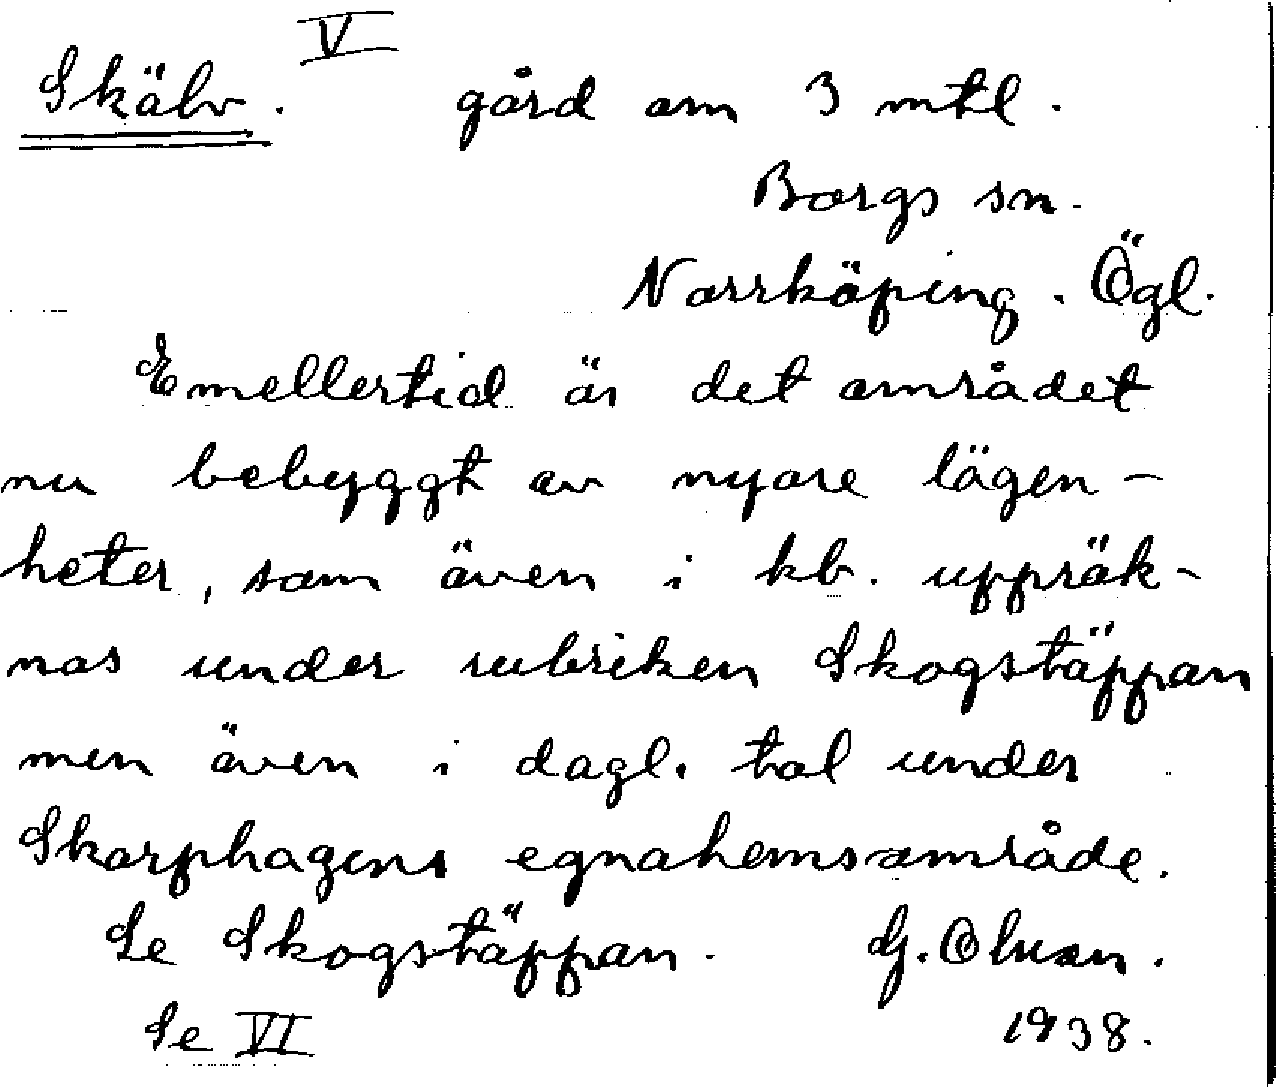 V
Skälv. gård om 3 mtl.
Borgs sn.
Norrköping. Ögl.
Emellertid är det området
nu bebyggt av nyare lägen-
heter, som även i kb. uppräk-
nas under rubriken Skogstäppan
men även i dagl. tal under
Skarphagens egnahemsområde.
Se Skogstäppan. G. Olsson.
Se VI 1938.